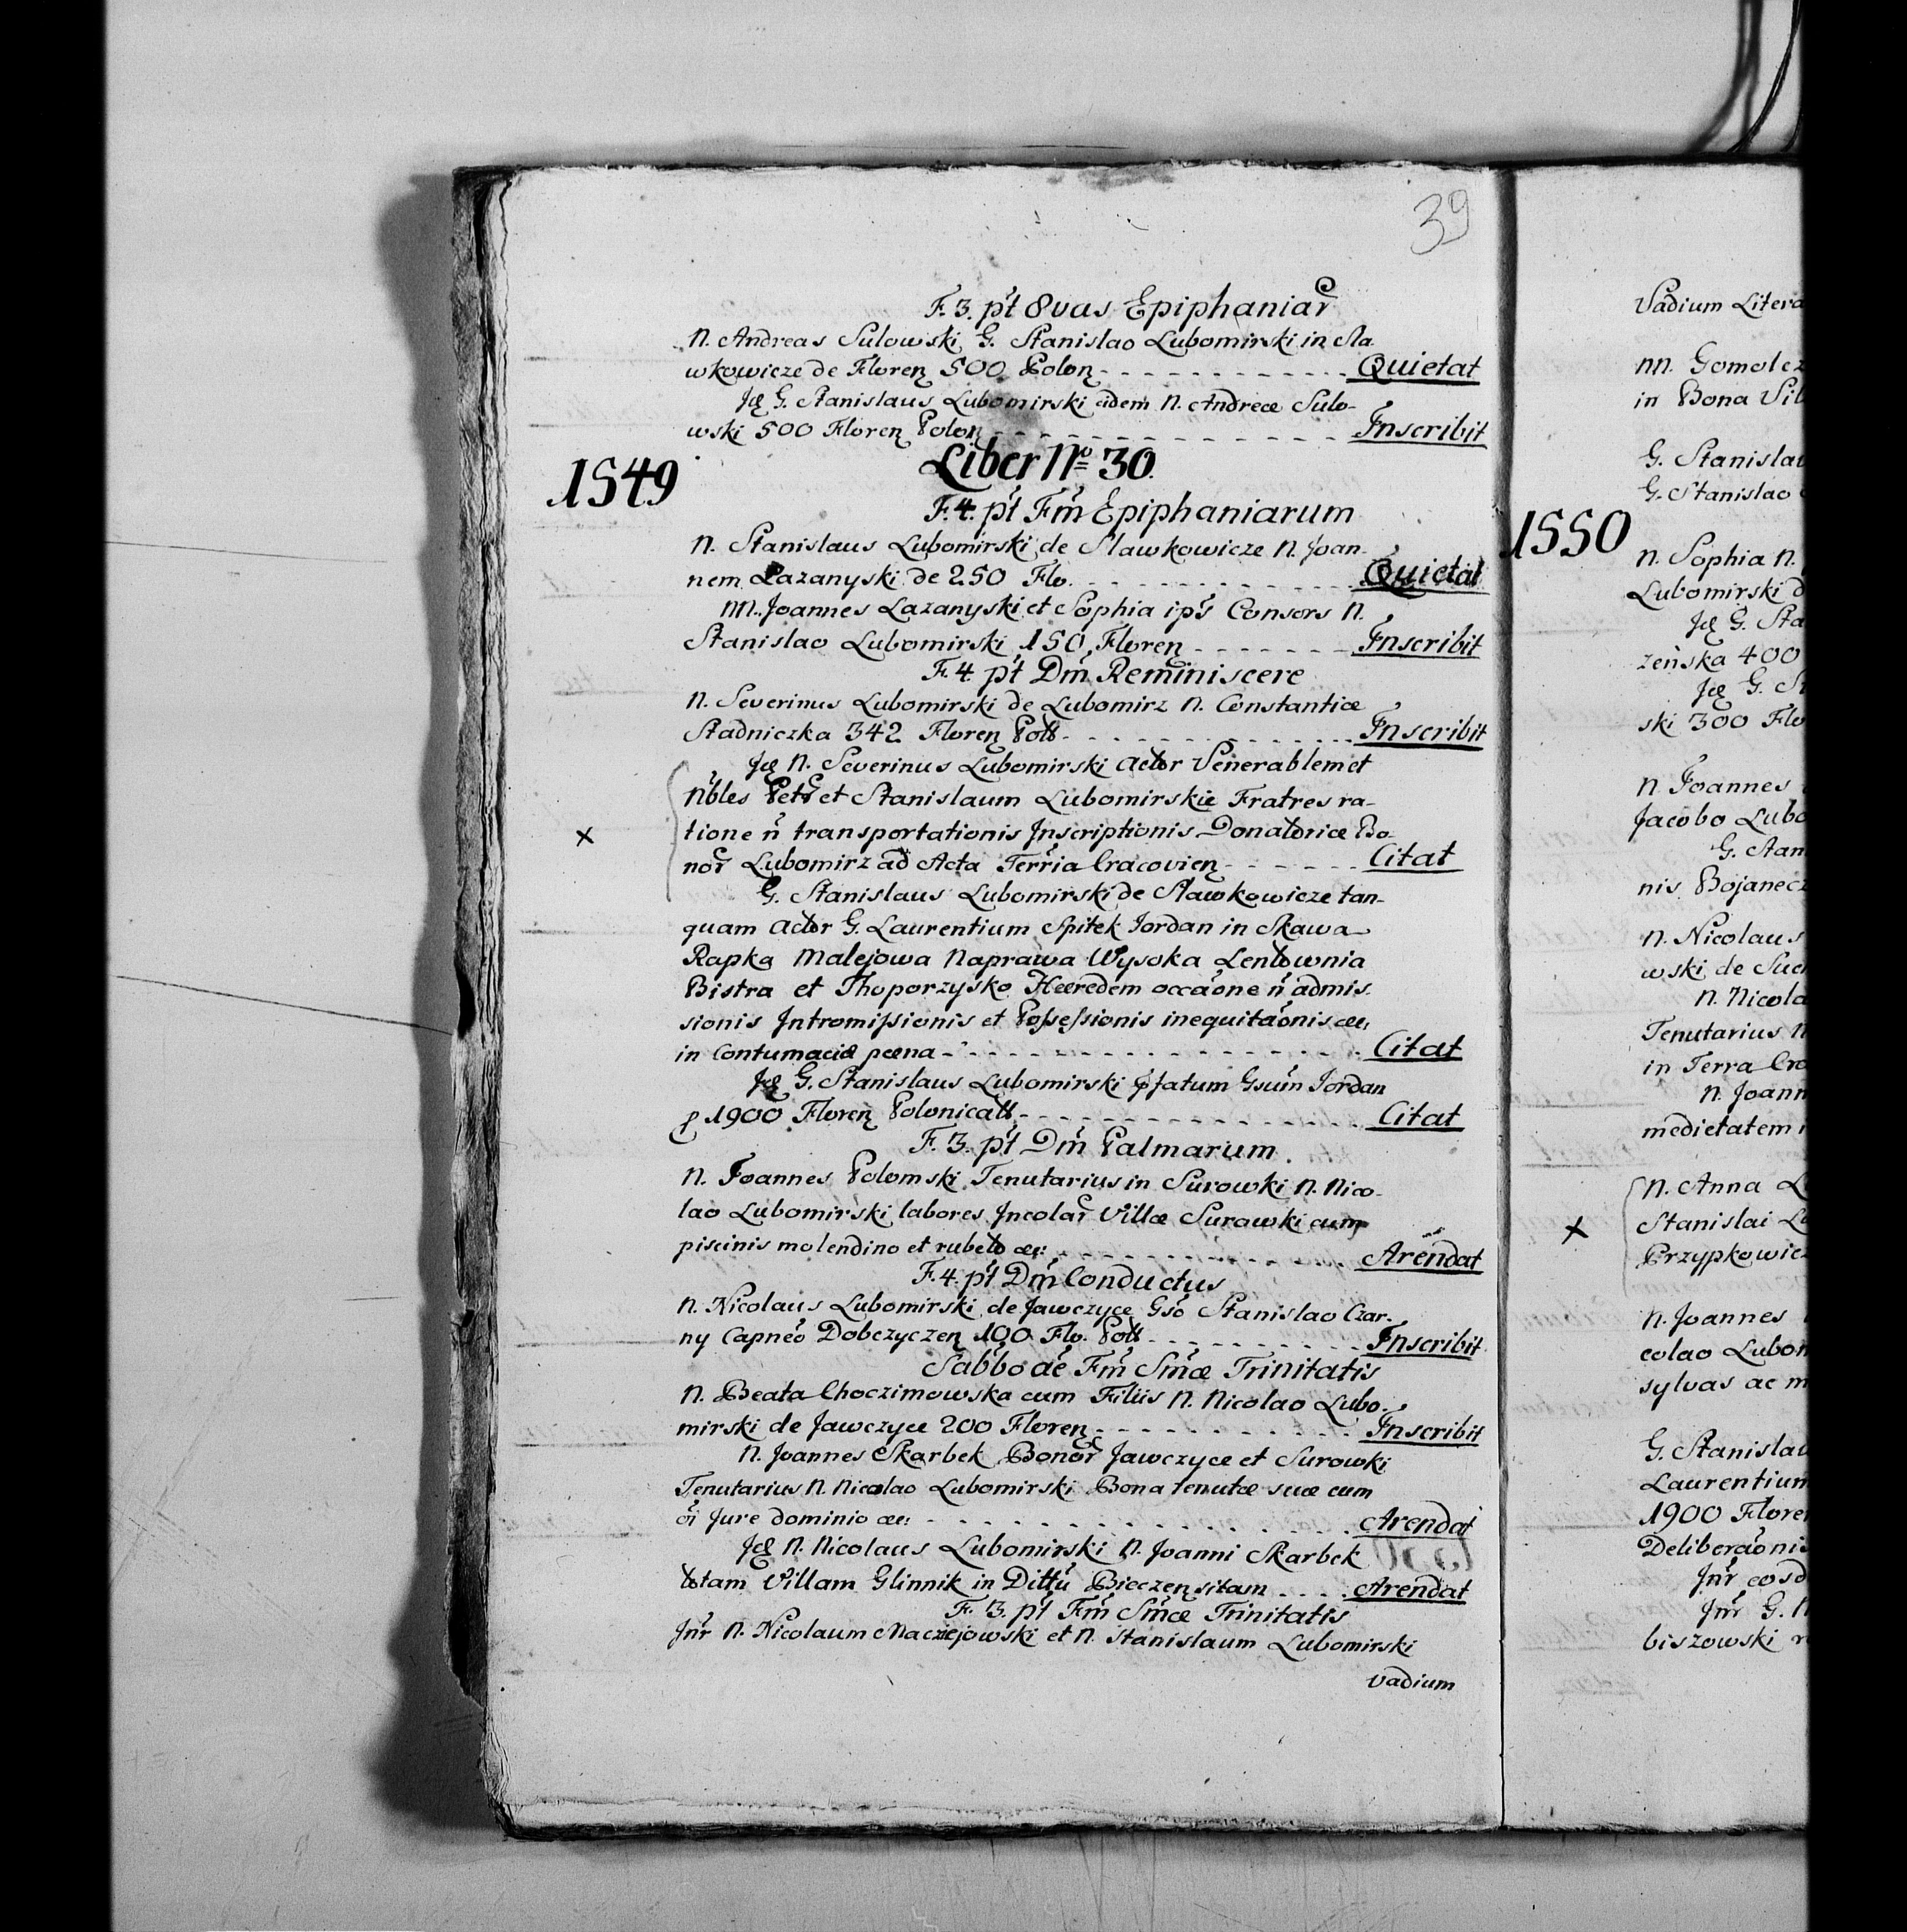 39
F. 3. pt 8vas Epiphaniar
N. Andreas Sulowski G. Stanislao Lubomirski in Sla
wkowicze de Floren 500 Polon - - - Quietat
Jd G. Stanislaus Lubomirski idem N. Andreæ Sulo-
wski 500 Floren Polon - - - Inscribit
Liber No 30.
1549
F. 4. pt Fm Epiphaniarum
N. Stanislaus Lubomirski de Slawkowicze N. Joan-
nem Lazanyski de 250 Flo. - - - Quietat
NN. Joannes Lazanyski et Sophia ips Consors N.
Stanislao Lubomirski 150 Floren - - - Inscribit
F. 4. pt Dm Reminiscere
N. Severinus Lubomirski de Lubomirz N. Constantiæ
Stadniczka 342 Floren Poll - - - Inscribit
Jd N. Severinus Lubomirski Actor Venerablem et
Nbles Petr et Stanislaum Lubomirskie Fratres ra-
x tione n transportationis Inscriptionis Donatoriæ Bo-
nor Lubomirz ad Acta Terria Cracovien - - - Citat
G. Stanislaus Lubomirski de Slawkowicze tan-
quam Actor G. Laurentium Spitek Jordan in Skawa
Rapka Malejowa Naprawa Wysoka Lentownia
Bistra et Thoporzysko Hæredem occaone n admis-
sionis Intromissionis et Possessionis inequitaonis æe:
in Contumaciæ pæna - - - Citat
Jd G. Stanislaus Lubomirski pfatum Gsum Jordan
p 1900 Floren Polonicall - - - Citat
F. 3. pt Dm Palmarum
N. Joannes Polomski Tenutarius in Surowki N. Nico-
lao Lubomirski labores Incolar Villæ Surawki cum
piscinis molendino et rubeto æe: - - - Arendat
F. 4. pt Dm Conductus
N. Nicolaus Lubomirski de Jawczyce Gso Stanislao Czar-
ny Capneo Dobczyczen 100 Flo. Poll - - - Inscribit
Sabbo ae Fm Smæ Trinitatis
N. Beata Choczimowska cum Filiis N. Nicolao Lubo-
mirski de Jawczyce 200 Floren - - - Inscribit
N. Joannes Skarbek Bonor Jawczyce et Surowki
Tenutarius N. Nicolao Lubomirski Bona tenutæ suæ cum
oi Jure dominio æe: - - - Arendat
Jd N. Nicolaus Lubomirski N. Joanni Skarbek
totam Villam Glinnik in Dittu Bieczen sitam - - - Arendat
F. 3. pt Fm Smæ Trinitatis
Jnr N. Nicolaum Maciejowski et N. Stanislaum Lubomirski
vadium
Vadium Litera
NN. Gomolcz
in Bona Vil
G. Stanislau
G. Stanislao
1550
N. Sophia N.
Lubomirski d
Jd G. Sta
zeńska 400
Jd G. St
ski 300 Flo
N. Joannes
Jacobo Lubo
G. Stan
nis Bojanecz
N. Nicolaus
wski de Suc
N. Nicola
Tenutarius N
in Terra Cra
N. Joann
medietatem
N. Anna L
x Stanislai Lu
Przypkowicz
N. Joannes
colao Lubom
sylvas ac m
G. Stanislau
Laurentium
1900 Flore
Deliberaonis
Jnr eosd
Jnr G. N
biszowski